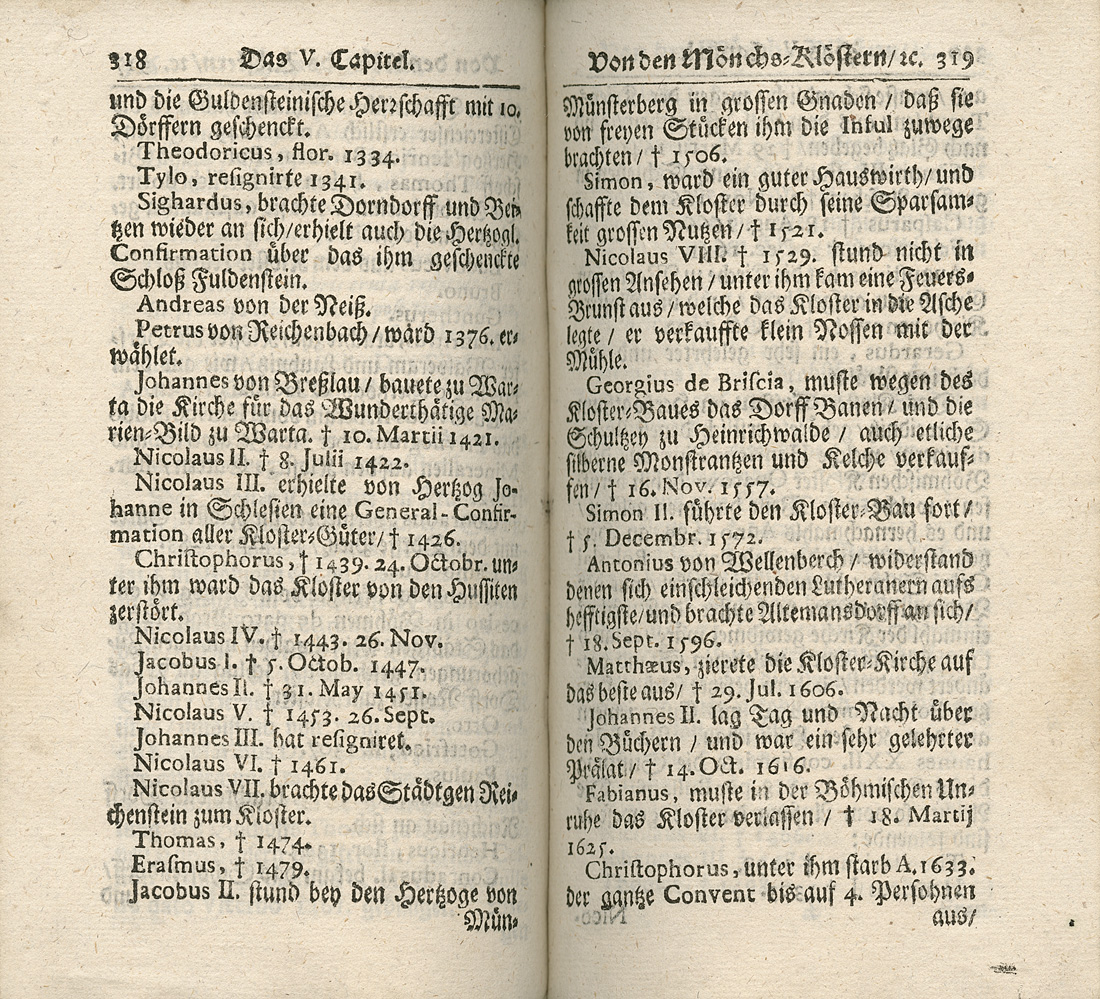 318 Das V. Capitel.
und die Guldensteinische Herrschafft mit 10.
Dörffern geschenckt.
Theodoricus, flor. 1334.
Tylo, resignirte 1341.
Sighardus, brachte Dorndorff und Bei-
tzen wieder an sich/erhielt auch die Hertzogl.
Confirmation über das ihm geschenckte
Schloß Fuldenstein.
Andreas von der Neiß.
Petrus von Reichenbach / ward 1376. er-
wählet.
Johannes von Breßlau / bauete zu War-
ta die Kirche für das Wunderthätige Ma-
rien-Bild zu Warta. † 10. Martii 1421.
Nicolaus II. † 8. Julii 1422.
Nicolaus III. erhielte von Hertzog Jo-
hanne in Schlesien eine General-Confir-
mation aller Kloster-Güter/ † 1426.
Christophorus, † 1439. 24. Octobr. un-
ter ihm ward das Kloster von den Hussiten
zerstört.
Nicolaus IV. † 1443. 26. Nov.
Jacobus I. † 5. Octob. 1447.
Johannes II. † 31. May 1451.
Nicolaus V. † 1453. 26. Sept.
Johannes III. hat resigniret.
Nicolaus VI. † 1461.
Nicolaus VII. brachte das Städtgen Rei-
chenstein zum Kloster.
Thomas, † 1474.
Erasmus, † 1479.
Jacobus II. stund bey den Hertzoge von
Mün-
Von den Mönchs-Klöstern/ ꝛc. 319
Münsterberg in grossen Gnaden / daß sie
von freyen Stücken ihm die Inful zuwege
brachten / † 1506.
Simon, ward ein guter Hauswirth/ und
schaffte dem Kloster durch seine Sparsam-
keit grossen Nutzen / † 1521.
Nicolaus VIII. † 1529. stund nicht in
grossen Ansehen / unter ihm kam eine Feuers-
Brunst aus / welche das Kloster in die Asche
legte / er verkauffte klein Nossen mit der
Mühle.
Georgius de Briscia, muste wegen des
Kloster-Baues das Dorff Banen / und die
Schultzey zu Heinrichwalde / auch etliche
silberne Monstrantzen und Kelche verkauf-
fen / † 16. Nov. 1557.
Simon II. führte den Kloster-Bau fort /
† 5. Decembr. 1572.
Antonius von Wellenberch / widerstand
denen sich einschleichenden Lutheranern aufs
hefftigste/und brachte Altemansdorff an sich/
† 18. Sept. 1596.
Matthæus, zierete die Kloster-Kirche auf
das beste aus/ † 29. Jul. 1606.
Johannes II. lag Tag und Nacht über
den Büchern / und war ein sehr gelehrter
Prälat / † 14. Oct. 1616.
Fabianus, muste in der Böhmischen Un-
ruhe das Kloster verlassen / † 18. Martij
1625.
Christophorus, unter ihm starb A. 1633.
der gantze Convent bis auf 4. Persohnen
aus/